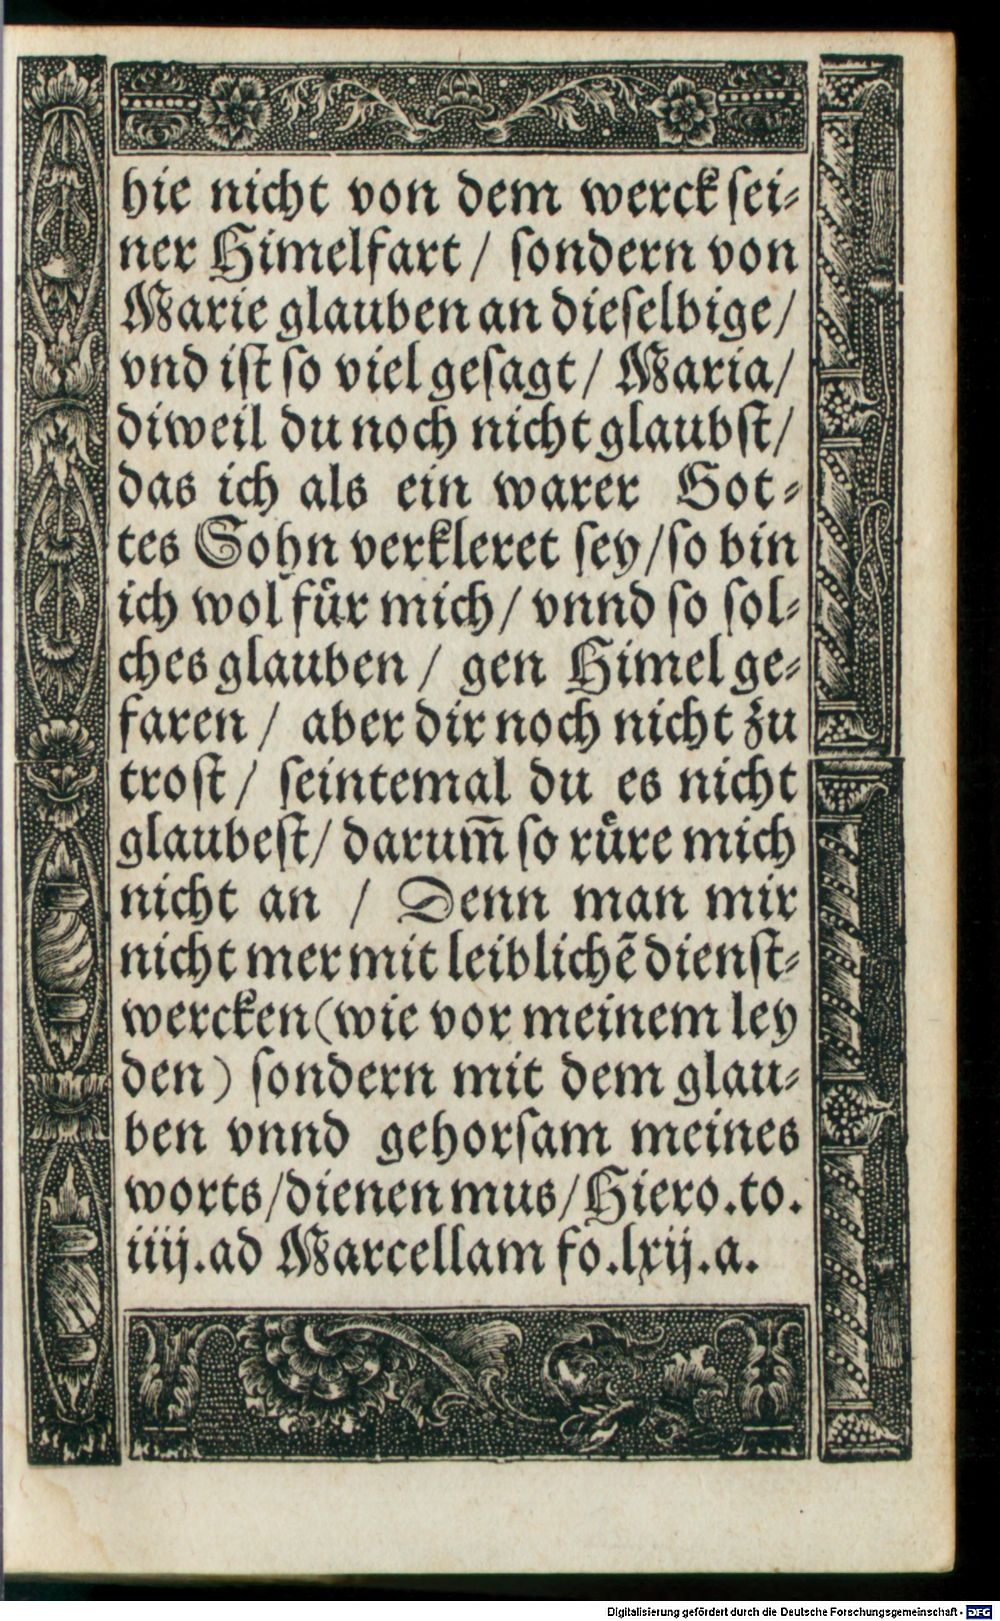 hie nicht von dem werck sei⸗
ner Himelfart / sondern von
Marie glauben an dieselbige/
vnd ist so viel gesagt / Maria/
diweil du noch nicht glaubst/
das ich als ein warer Got⸗
tes Sohn verkleret sey/so bin
ich wol fuͤr mich/ vnnd so sol⸗
ches glauben / gen Himel ge⸗
faren / aber dir noch nicht zu
trost/ seintemal du es nicht
glaubest/ darum̄ so ruͤre mich
nicht an / Denn man mir
nicht mer mit leiblichē dienst⸗
wercken(wie vor meinem ley
den) sondern mit dem glau⸗
ben vnnd gehorsam meines
worts/dienen mus/Hiero.to.
iiij.ad Marcellam fo.lxij.a.
Digitalisierung gefördert durch die Deutsche Forschungsgemeinschaft - DFG